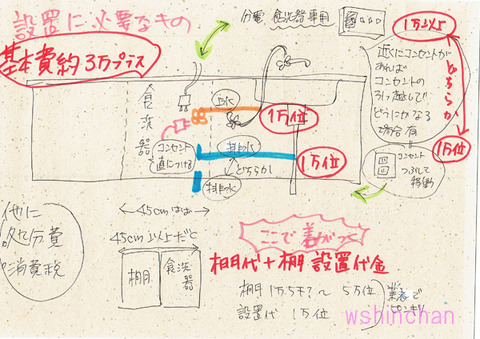 設置に必要なもの
基本費約3万プラス
分電 食洗器専用
1万以上
どちらか
1万位
近くにコンセントが
あれば
コンセントの
引っ越しで
どうにかなる
場合有
コンセント
つぶして
移動
食洗器
コンセント
直につける
止水
1万位
排水
どちらか
1万位
排水
他に
処分費
消費税
45cmはば
45cm以上だと
棚
食洗器
ここで差がつく
棚代+棚設置代金
棚1万5千?~5万位
設置代 1万位
業者で
ピンキリ
wshinchan